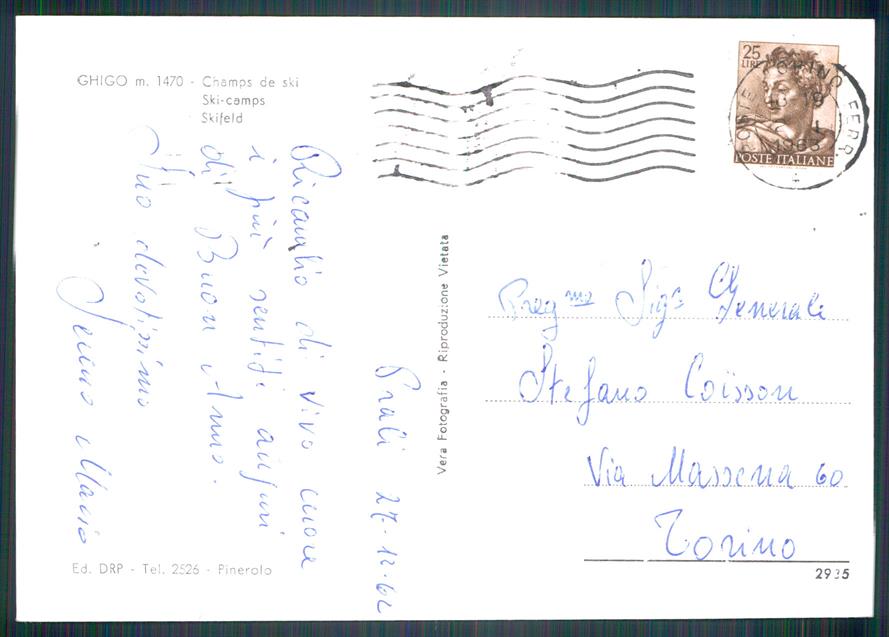 GHIGO m. 1470 - Champs de ski
Ski-camps
Skifeld
Prali 27-12-62
Ricambio di vivo cuore
i più sentiti auguri
di Buon Anno.
Suo devotissimo
Vera Fotografia - Riproduzione Vietata
Ed. DRP - Tel. 2526 - Pinerolo
25
LIRE
POSTE ITALIANE
TORINO FERR
19
1963
Preg mo Sig. Generali
Stefano Coïsson
Via Massena 60
Torino
2935